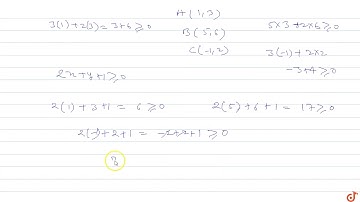 3(1)+2(3)=3+6⩾0
A(1,3)
B(5,6)
C(-1,2)
5×3+2×6⩾0
3(-1)+2×2
-3+4⩾0
2x+y+1⩾0
2(1)+3+1 = 6⩾0
2(5)+6+1 = 17⩾0
2(-1)+2+1 = -2+2+1⩾0